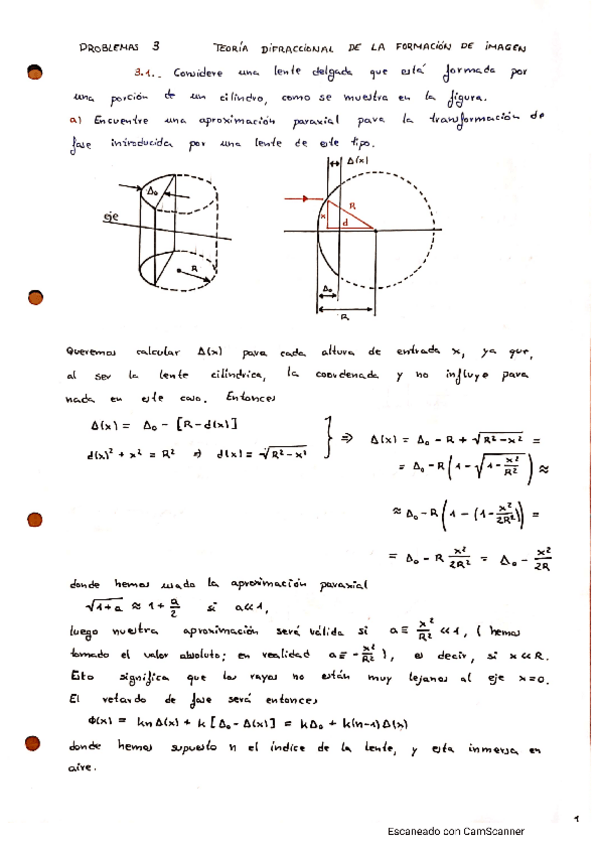 PROBLEMAS 3 TEORÍA DIFRACCIONAL DE LA FORMACIÓN DE IMAGEN
3.1.. Considere una lente delgada que está formada por
una porción de un cilindro, como se muestra en la figura.
a) Encuentre una aproximación paraxial para la transformación de
fase introducida por una lente de este tipo.
Δ₀
eje
R
Δ(x)
R
x
d
Δ₀
R
Queremos calcular Δ(x) para cada altura de entrada x, ya que,
al ser la lente cilíndrica, la coordenada y no influye para
nada en este caso. Entonces
Δ(x) = Δ₀ - [R-d(x)]
d(x)² + x² = R² ⇒ d(x) = √(R²-x²)
} ⇒ Δ(x) = Δ₀ - R + √(R²-x²) =
= Δ₀ - R(1 - √(1 - x²/R²)) ≈
≈ Δ₀ - R(1 - (1 - x²/2R²)) =
= Δ₀ - R x²/2R² = Δ₀ - x²/2R
donde hemos usado la aproximación paraxial
√(1+a) ≈ 1 + a/2 si a≪1,
luego nuestra aproximación será válida si a ≡ x²/R² ≪ 1, ( hemos
tomado el valor absoluto; en realidad a ≡ - x²/R² ), es decir, si x≪R.
Esto significa que los rayos no están muy lejanos al eje x=0.
El retardo de fase será entonces
Φ(x) = knΔ(x) + k[Δ₀-Δ(x)] = kΔ₀ + k(n-1)Δ(x)
donde hemos supuesto n el índice de la lente, y esta inmersa en
aire.
1
Escaneado con CamScanner